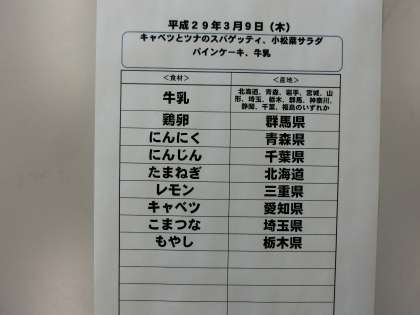 平成29年3月9日（木）
キャベツとツナのスパゲッティ、小松菜サラダ
パインケーキ、牛乳
＜食材＞ ＜産地＞
牛乳 北海道、青森、岩手、宮城、山
形、埼玉、栃木、群馬、神奈川、
静岡、千葉、福島のいずれか
鶏卵 群馬県
にんにく 青森県
にんじん 千葉県
たまねぎ 北海道
レモン 三重県
キャベツ 愛知県
こまつな 埼玉県
もやし 栃木県